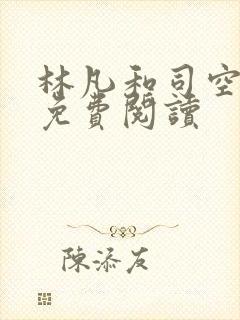 林凡和司空
免費閱讀
陳添友